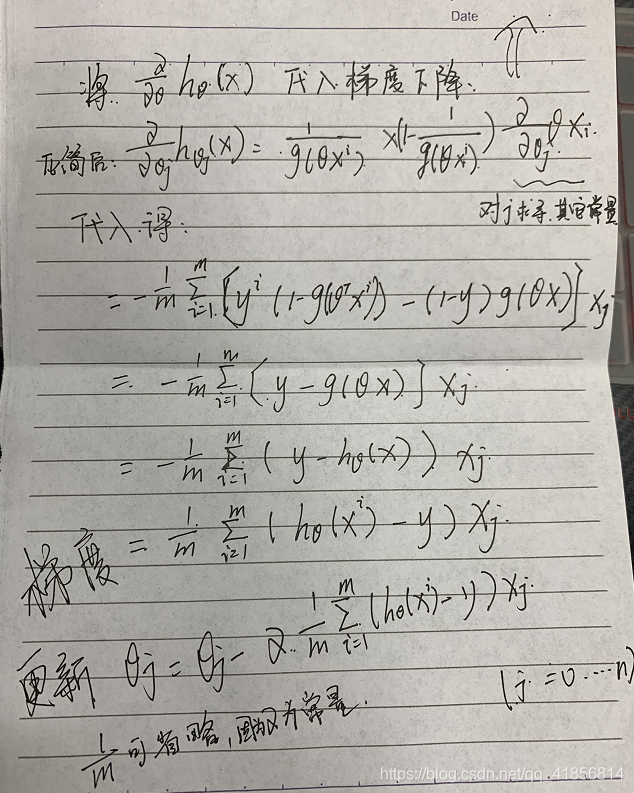 Date
将 ∂/∂θ hθ(x) 代入梯度下降:
化简后: ∂/∂θj hθj(x) = 1/g(θxⁱ) x(1-1/g(θxⁱ)) ∂/∂θj θxi.
对j求导.其它常量
代入得:
= -1/m Σ(i=1→m) [yⁱ(1-g(θᵀxⁱ)) - (1-y)g(θx)] xj
= -1/m Σ(i=1→m) [y-g(θx)] xj.
= -1/m Σ(i=1→m) (y-hθ(x)) xj.
梯度 = 1/m Σ(i=1→m) (hθ(xⁱ)-y) xj.
更新 θj = θj - α 1/m Σ(i=1→m) (hθ(xⁱ)-y) xj.
(j=0....n)
1/m 可省略,因为α为常量.
https://blog.csdn.net/qq_41856814